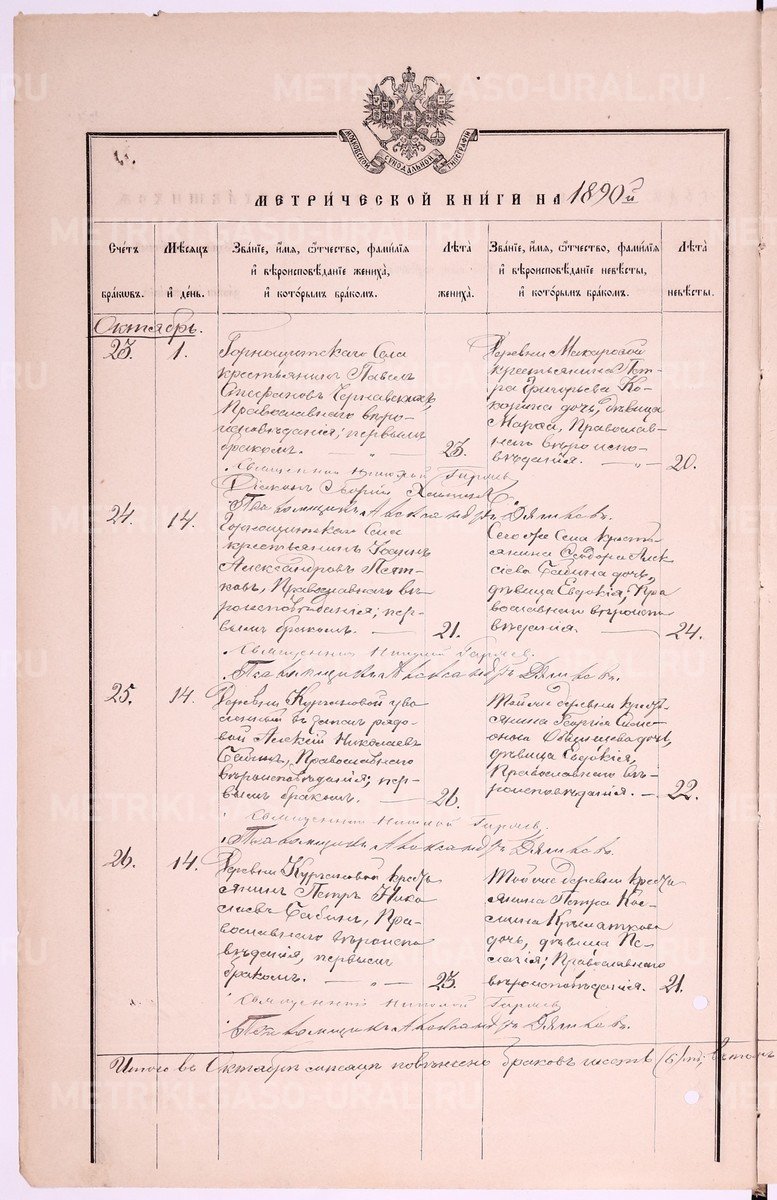 МОСКОВСКОЙ СѴНОДАЛЬНОЙ ТИПОГРАФІИ
МЕТРИ́ЧЕСКОЙ КНИ́ГИ НА 1890й
Сче́тъ бра́кωвъ.
Мѣ́сяцъ и҆ де́нь.
Зва́нїе, и҆́мя, ѻ҆́тчество, фами́лїя и҆ вѣроисповѣ́данїе жениха̀, и҆ кото́рымъ бра́комъ.
Лѣ́та жениха̀.
Зва́нїе, и҆́мя, ѻ҆́тчество, фами́лїя и҆ вѣроисповѣ́данїе невѣ́сты, и҆ кото́рымъ бра́комъ.
Лѣ́та невѣ́сты.
Октябрь.
23.
1.
Горнощитскаго Села
крестьянинъ Павелъ
Стефановъ Чернавскихъ,
Православнаго вѣро-
исповѣданія; первымъ
бракомъ. — „ —
23.
Деревни Макаровой
крестьянина Пет-
ра Григорьева Ко-
корина дочь, дѣвица
Марѳа, Православ-
наго вѣроиспо-
вѣданія. — „ —
20.
Священникъ Николай Гиряев
Діаконъ Георгій
Псаломщикъ Александръ Дягиковъ.
24.
14.
Горнощитскаго Села
крестьянинъ Іоаннъ
Александровъ Пят-
ковъ, Православнаго вѣ-
роисповѣданія; пер-
вымъ бракомъ. —
21.
Сегоже Села кресть-
янина Ѳеодора Алек-
сіева Бабина дочь,
дѣвица Евдокія, Пра-
вославнаго вѣроиспо-
вѣданія. —
24.
Священникъ Николай Гиряев.
Псаломщикъ Александръ Дягиковъ.
25.
14.
Деревни Кургановой уво-
ленный въ запасъ рядо-
вой Алексій Николаевъ
Бабинъ, Православнаго
вѣроисповѣданія; пер-
вымъ бракомъ. —
26.
Той же деревни кресть-
янина Георгія Симе-
онова дочь,
дѣвица Евдокія,
Православнаго вѣ-
роисповѣданія. —
22.
Священникъ Николай Гиряев.
Псаломщикъ Александръ Дягиковъ.
26.
14.
Деревни Кургановой кресть-
янинъ Петръ Нико-
лаевъ Бабинъ, Пра-
вославнаго вѣроиспо-
вѣданія, первымъ
бракомъ. — „ —
23.
Той же деревни крестья-
янина Петра Кос-
мина Крылаткова
дочь, дѣвица Пе-
лагія; Православнаго
вѣроисповѣданія.
21.
Священникъ Николай Гиряев
Псаломщикъ Александръ Дягиковъ.
Итого въ Октябрѣ мѣсяцѣ повѣнчено браковъ шесть (6)
METRIKI.GASO-URAL.RU